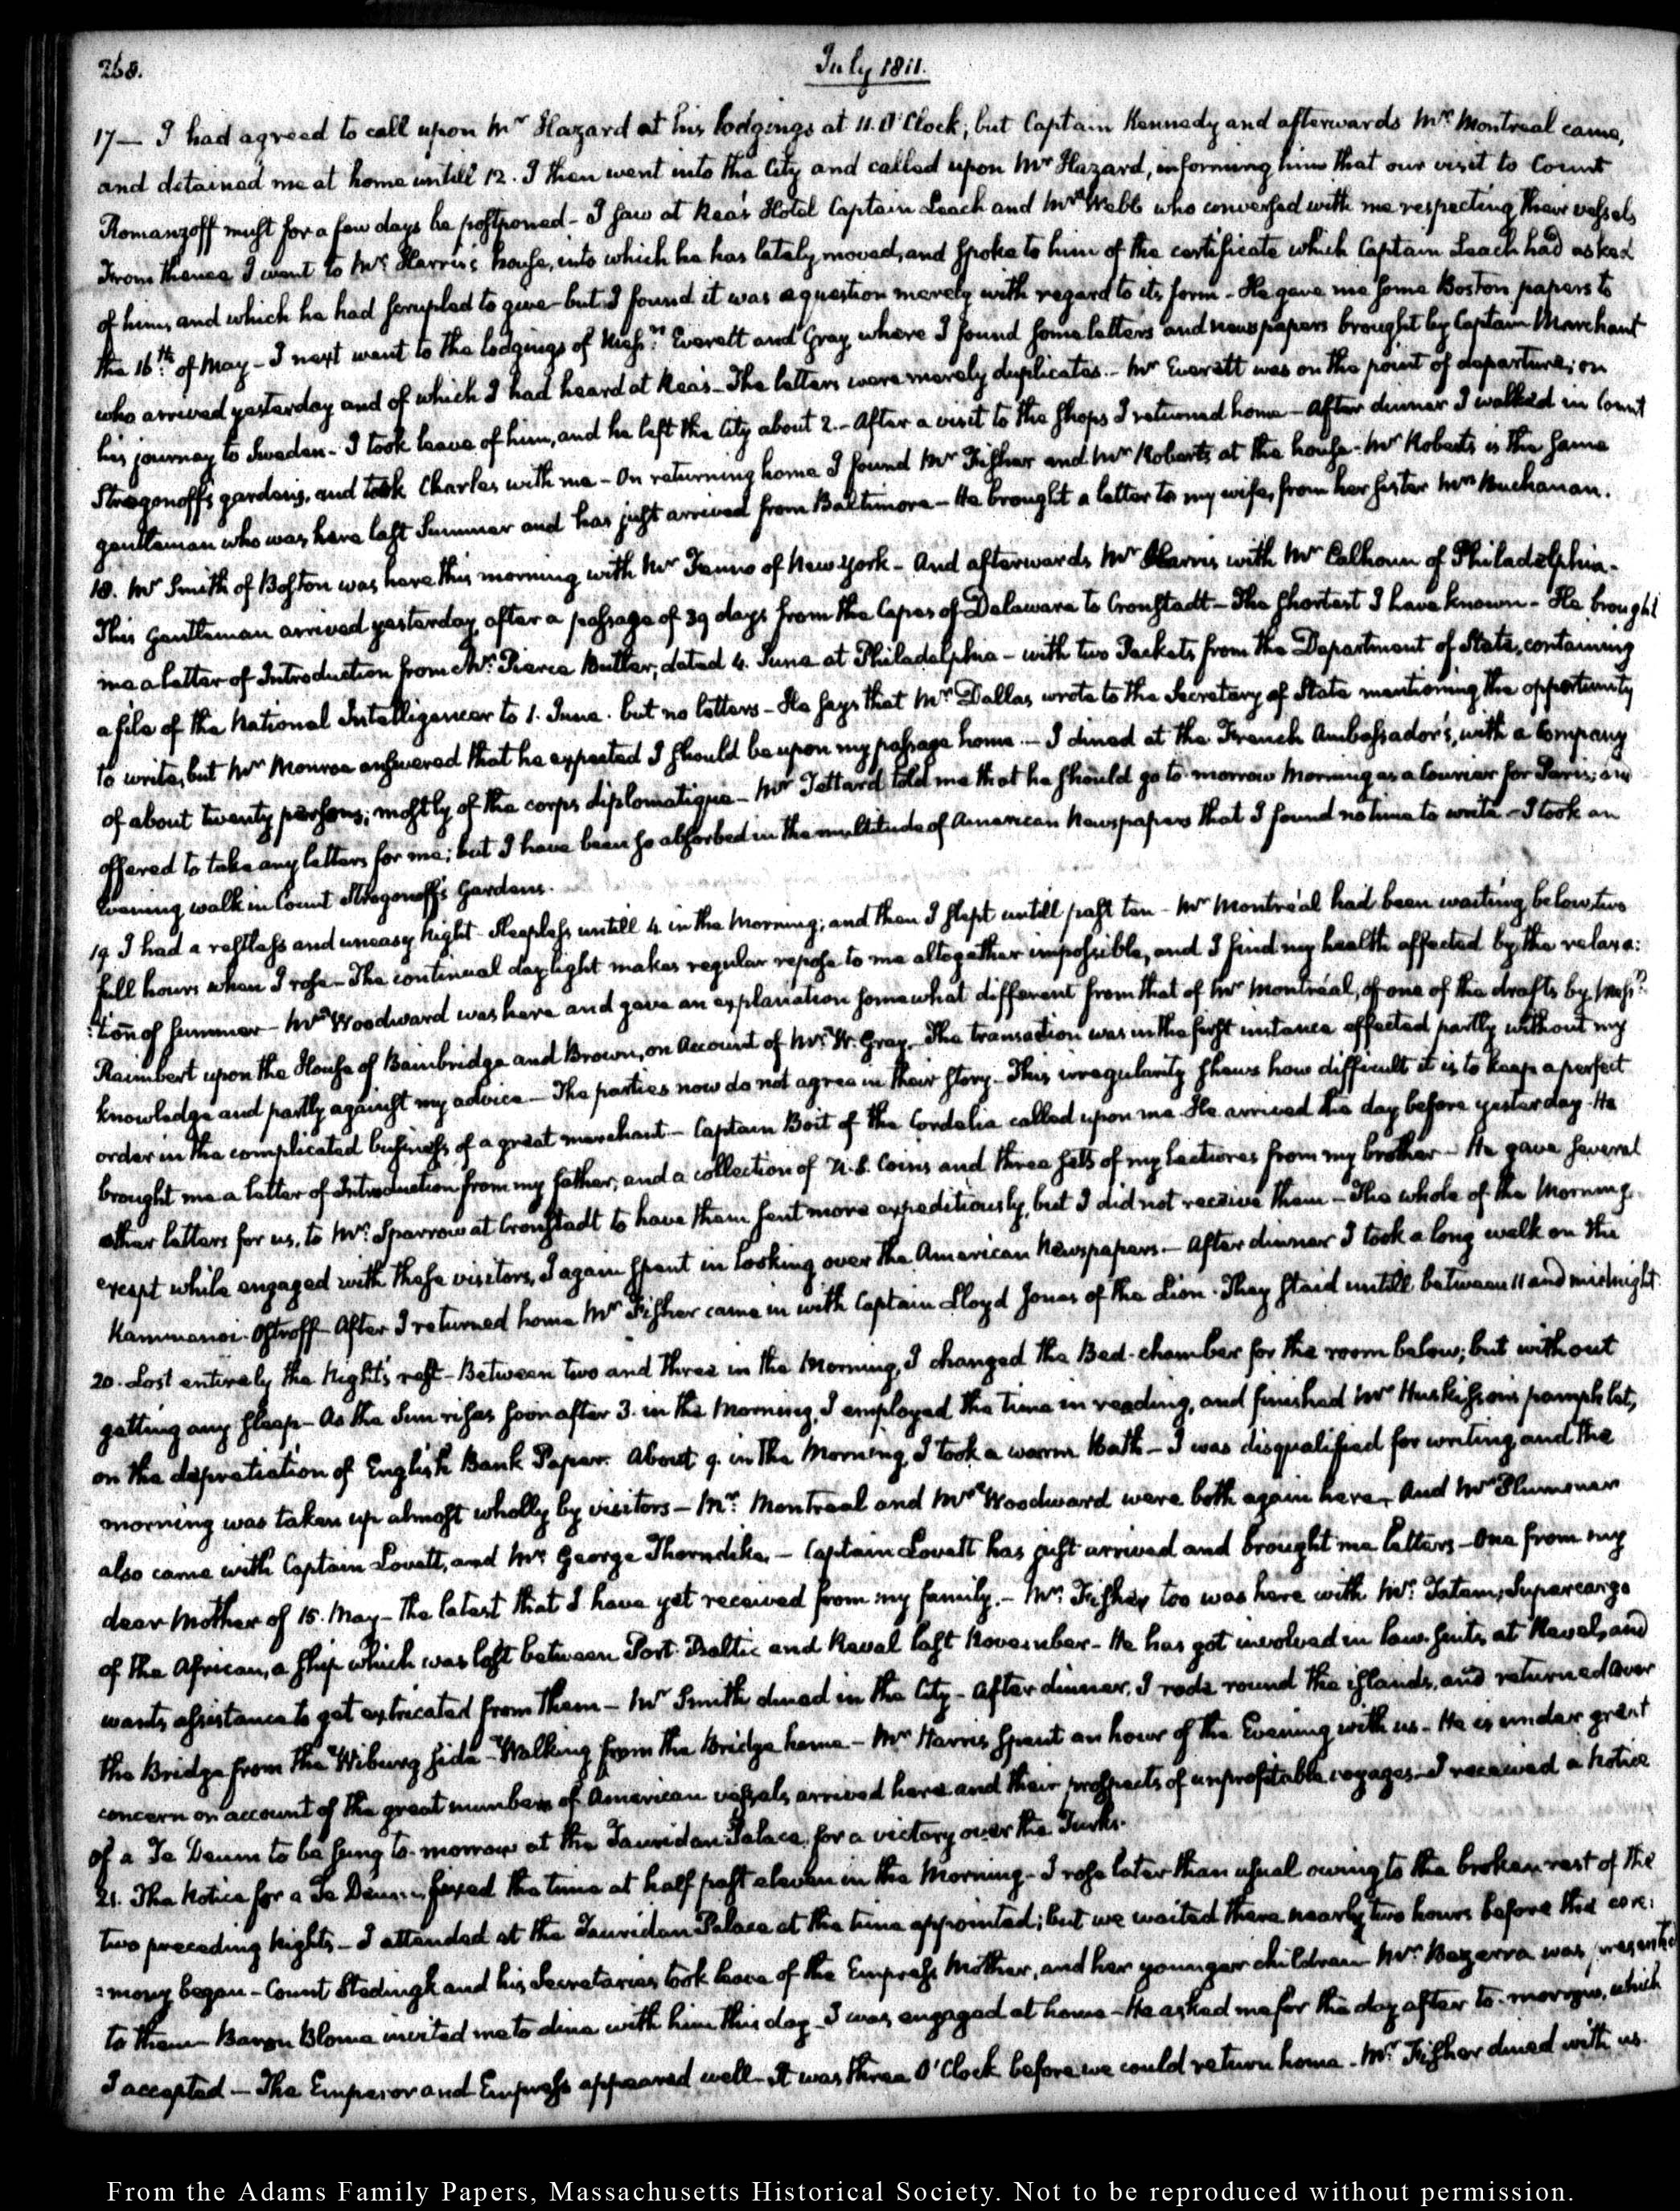 268.
July 1811.
17— I had agreed to call upon Mr Hazard at his lodgings at 11. O'Clock; but Captain Kennedy and afterwards Mr. Montreal came,
and detained me at home untill 12. I then went into the City and called upon Mr Hazard, informing him that our visit to Count
Romanzoff must for a few days be postponed — I saw at Rea's Hotel Captain Leach and Mr Webb who conversed with me respecting their vessels
From thence I went to Mr. Harris's house, into which he has lately moved, and spoke to him of the certificate which Captain Leach had asked
of him, and which he had scrupled to give — but I found it was a question merely with regard to its form — He gave me some Boston papers to
the 16th. of May — I next went to the lodgings of Messrs. Everett and Gray where I found some letters and newspapers brought by Captain Marchant
who arrived yesterday and of which I had heard at Rea's — The letters were merely duplicates. — Mr Everett was on the point of departure; on
his journey to Sweden — I took leave of him, and he left the City about 2. — After a visit to the shops I returned home — After dinner I walked in Count
Strogonoff's gardens, and took Charles with me — On returning home I found Mr Fisher and Mr Roberts at the house — Mr Roberts is the same
gentleman who was here last Summer and has just arrived from Baltimore — He brought a letter to my wife, from her sister Mrs Buchanan.
18. Mr Smith of Boston was here this morning with Mr Fenno of New York — And afterwards Mr Harris with Mr Calhoun of Philadelphia —
This Gentleman arrived yesterday, after a passage of 39 days from the Capes of Delaware to Cronstadt — The shortest I have known — He brought
me a letter of Introduction from Mr. Pierce Butler, dated 4. June at Philadelphia — with two Packets from the Department of State, containing
a file of the National Intelligencer to 1. June. but no letters — He says that Mr. Dallas wrote to the Secretary of State mentioning the opportunity
to write, but Mr Monroe answered that he expected I should be upon my passage home. — I dined at the French Ambassador's, with a Company
of about twenty persons; mostly of the corps diplomatique — Mr Tettard told me that he should go to-morrow Morning as a Courier for Paris; and
offered to take any letters for me; but I have been so absorbed in the multitude of American Newspapers that I found no time to write — I took an
Evening walk in Count Strogonoff's Gardens.
19 I had a restless and uneasy Night — Sleepless untill 4. in the Morning; and then I slept untill past ten — Mr Montréal had been waiting below two
full hours when I rose — The continual day light makes regular repose to me altogether impossible, and I find my health affected by the relaxa:
:tion of Summer — Mr Woodward was here and gave an explanation somewhat different from that of Mr Montréal, of one of the drafts by Messrs.
Raimbert upon the House of Bainbridge and Brown, on Account of Mr. W. Gray — The transaction was in the first instance effected partly without my
knowledge and partly against my advice — The parties now do not agree in their story — This irregularity shews how difficult it is to keep a perfect
order in the complicated business of a great merchant — Captain Boit of the Cordelia called upon me. He arrived the day before yesterday — He
brought me a letter of Introduction from my father, and a collection of U.S. Coins and three sets of my lectures from my brother — He gave several
other letters for us, to Mr. Sparrow at Cronstadt to have them sent more expeditiously, but I did not receive them — The whole of the Morning,
except while engaged with these visitors, I again spent in looking over the American Newspapers. — After dinner I took a long walk on the
Kammenoi-Ostroff — After I returned home Mr Fisher came in with Captain Lloyd Jones of the Lion. They staid untill between 11 and midnight.
20. Lost entirely the Night's rest — Between two and three in the Morning, I changed the Bed-chamber for the room below; but without
getting any sleep — As the Sun rises soon after 3. in the Morning, I employed the time in reading, and finished Mr Huskisson's pamphlet,
on the depretiation of English Bank Paper. About 9. in the Morning, I took a warm Bath — I was disqualified for writing and the
morning was taken up almost wholly by visitors — Mr. Montreal and Mr Woodward were both again here, And Mr Plummer
also came with Captain Lovett, and Mr. George Thorndike, — Captain Lovett has just arrived and brought me letters — One from my
dear Mother of 15. May — The latest that I have yet received from my family. — Mr. Fisher too was here with Mr. Tatem, Supercargo
of the African, a ship which was lost between Port-Baltic and Reval last November — He has got involved in law-suits, at Reval, and
wants assistance to get extricated from them — Mr Smith dined in the City — After dinner, I rode round the islands, and returned over
the Bridge from the Wiburg side — Walking from the Bridge home — Mr Harris spent an hour of the Evening with us — He is under great
concern on account of the great numbers of American vessels arrived here and their prospects of unprofitable voyages — I received a Notice
of a Te Deum to be sung to-morrow at the Tauridan Palace, for a victory over the Turks.
21. The Notice for a Te Deum, fixed the time at half past eleven in the Morning — I rose later than usual owing to the broken rest of the
two preceding Nights — I attended at the Tauridan Palace at the time appointed; but we waited there nearly two hours before the cere:
:mony began — Count Stedingk and his Secretaries took leave of the Empress Mother, and her younger children — Mr. Bezerra was presented
to them — Baron Blome invited me to dine with him this day — I was engaged at home — He asked me for the day after to-morrow, which
I accepted — The Emperor and Empress appeared well — It was three O'Clock before we could return home — Mr. Fisher dined with us.
From the Adams Family Papers, Massachusetts Historical Society. Not to be reproduced without permission.